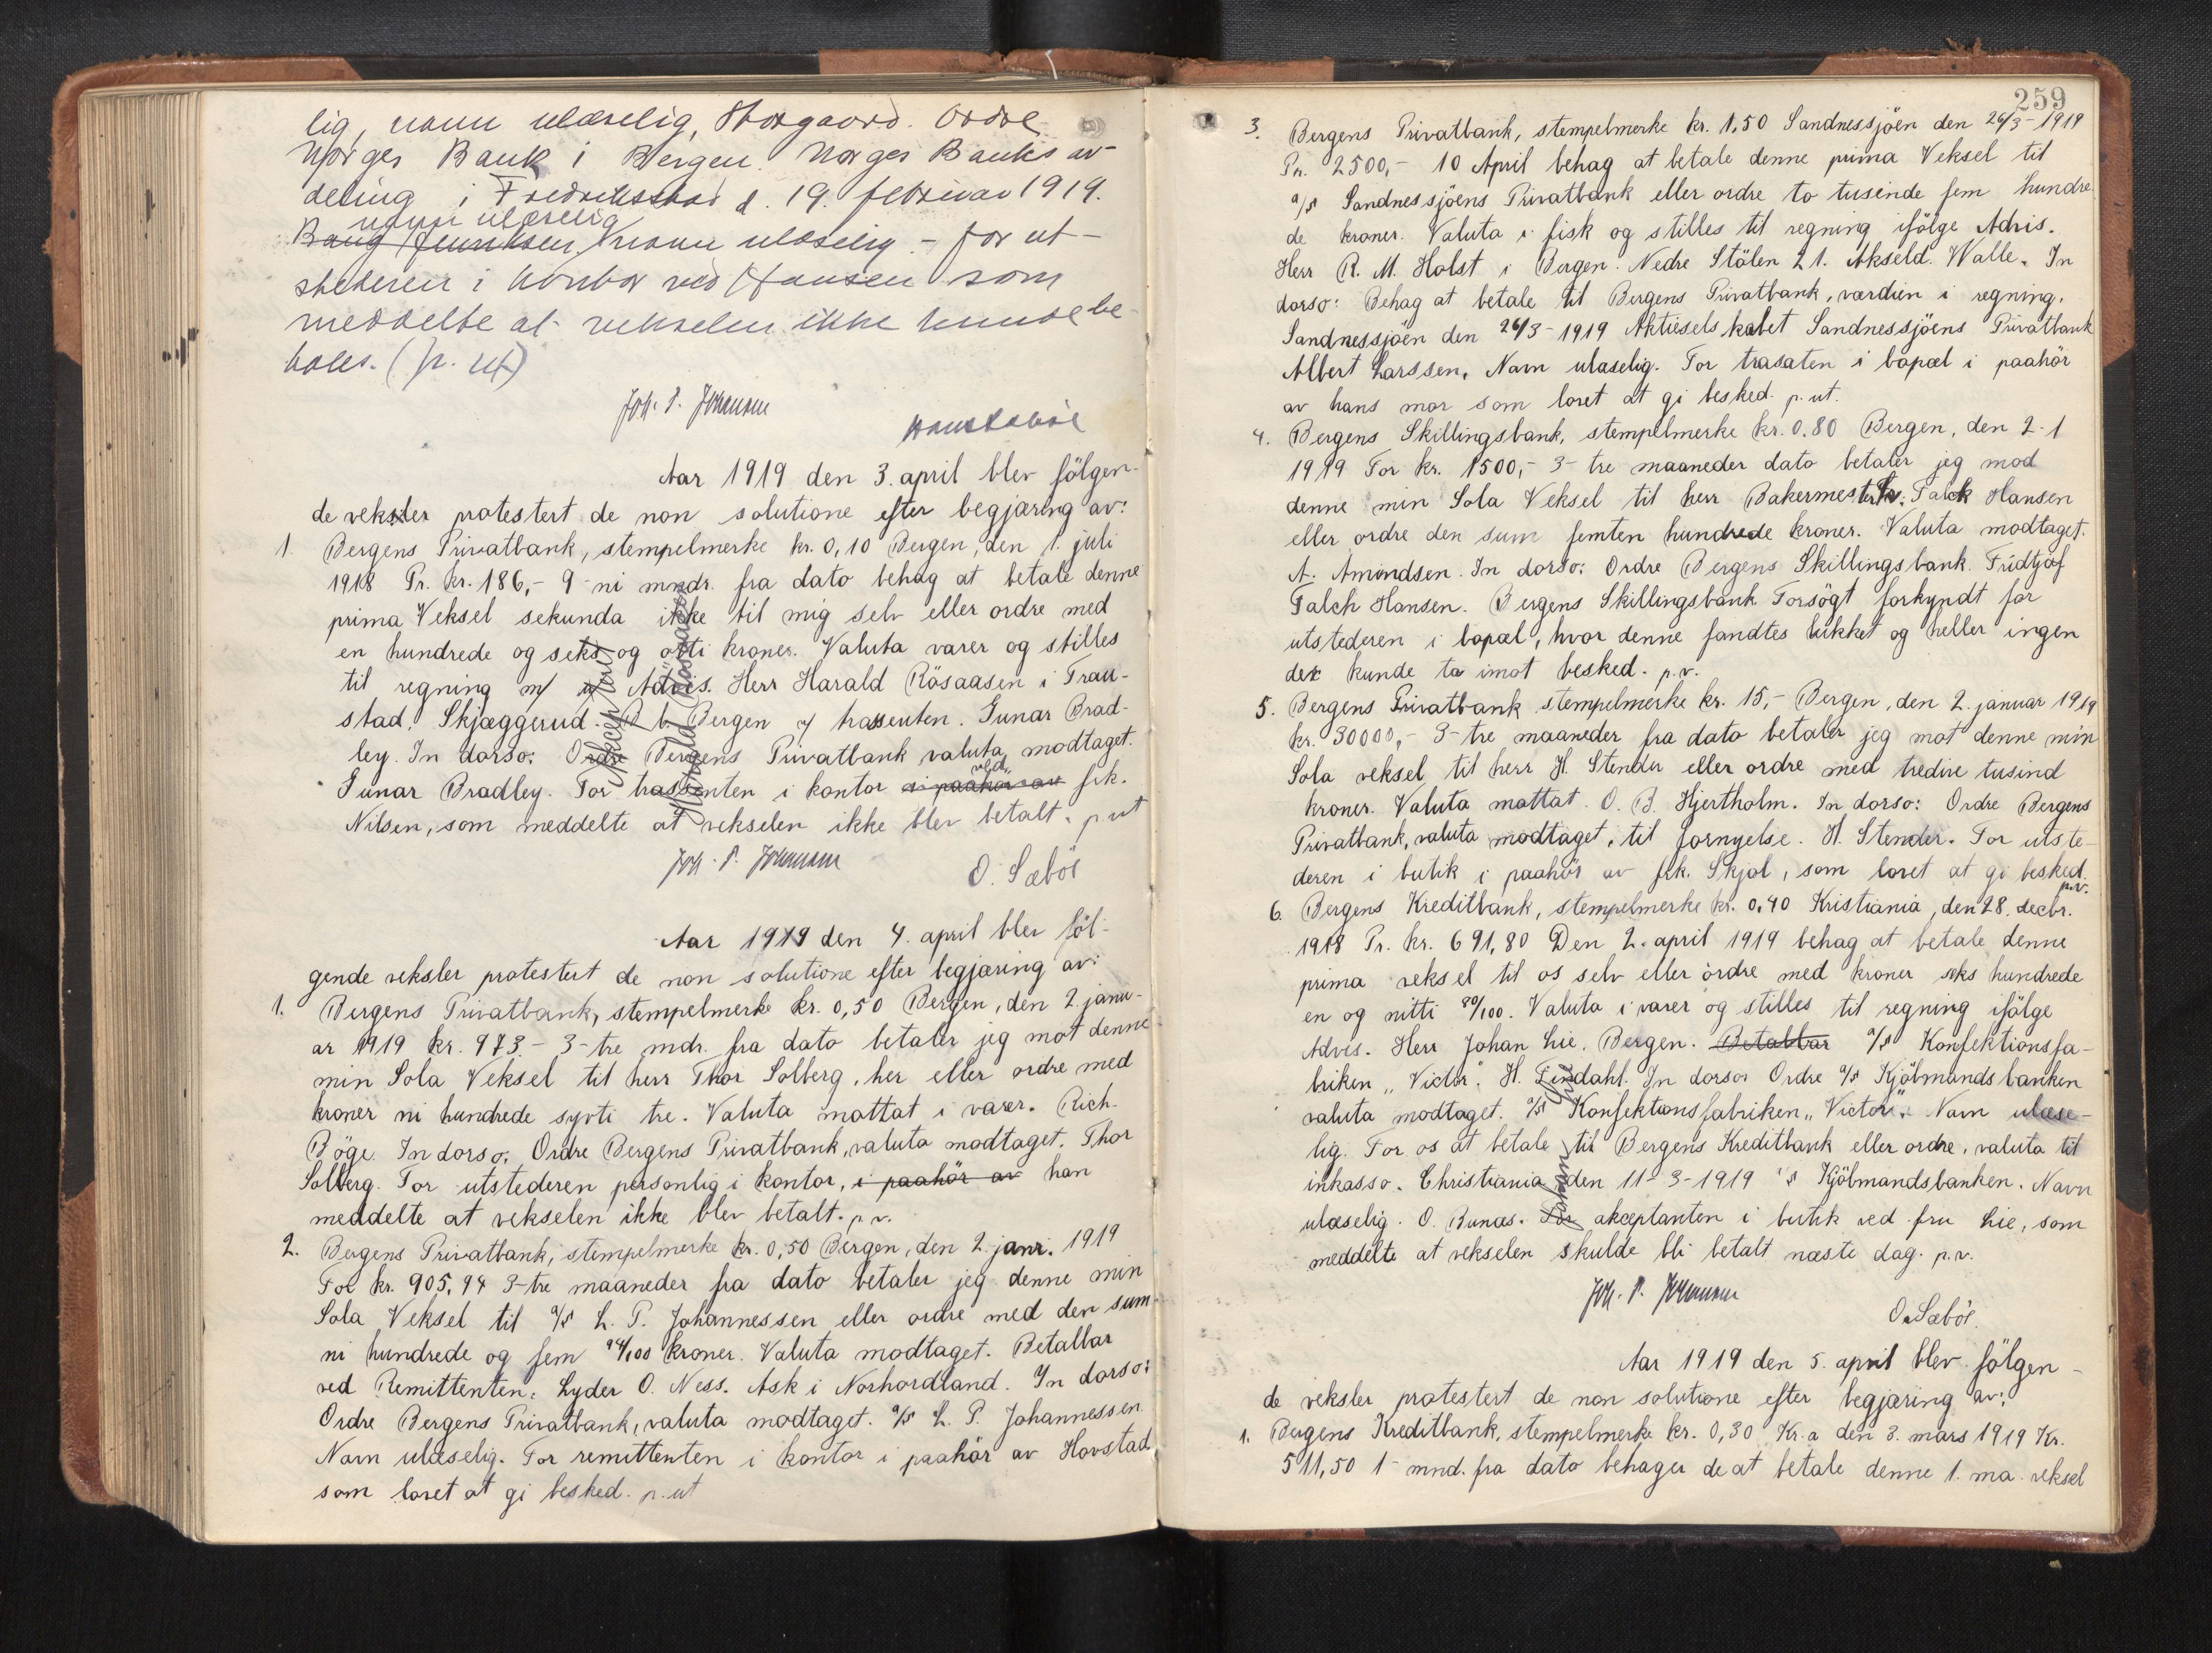 lig, navn ulæselig, Storgaard. Ordre
Norges Bank i Bergen. Norges Banks av-
deling i Fredriksstad d. 19. februar 1919.
navn ulæselig
Bang Henriksen, navn ulæselig - for ut-
stederen i kontor ved Hansen som
meddelte at vekselen ikke kunde be-
tales. (p. ut)
Joh. P. Johansen
Aar 1919 den 3. april blev fölgen-
de veksler protestert de non solutione efter begjæring av:
1. Bergens Privatbank, stempelmerke kr. 0,10 Bergen, den 1. juli
1918 Pr. kr. 186,- 9 - ni mndr. fra dato behag at betale denne
prima Veksel sekunda ikke til mig selv eller ordre med
en hundrede og seks og otti kroner. Valuta varer og stilles
til regning m/ u/ Advis. Herr Harald Rösaasen i Trau-
stad, Skjæggerud. B. b. Bergen v/ trassenten. Gunar Brad-
ley. In dorso: Ordre Bergens Privatbank valuta modtaget.
Gunar Bradley. For trassenten i kontor i paahör av ved frk.
Nilsen, som meddelte at vekselen ikke blev betalt. p ut
Akcepteret Harald Rösaasen
Joh. P. Johansen
O. Sæböe
Aar 1919 den 4. april blev föl-
gende veksler protestert de non solutione efter begjæring av:
1. Bergens Privatbank, stempelmerke kr. 0,50 Bergen, den 2. janu-
ar 1919 kr. 973.- 3 - tre mdr. fra dato betaler jeg mot denne
min Sola Veksel til herr Thor Solberg, her eller ordre med
kroner ni hundrede syvti tre. Valuta mattat i varer. Rich.
Böge. In dorso. Ordre Bergens Privatbank, valuta modtaget. Thor
Solberg. For utstederen personlig i kontor, i paahör av han
meddelte at vekselen ikke blev betalt. p. v.
2. Bergens Privatbank, stempelmerke kr. 0,50 Bergen, den 2. janr. 1919
For kr. 905,94 3 - tre maaneder fra dato betaler jeg denne min
Sola Veksel til a/s L. P. Johannessen eller ordre med den sum
ni hundrede og fem 94/100 kroner. Valuta modtaget. Betalbar
ved Remittenten. Lyder O. Ness. Ask i Norhordland. In dorso:
Ordre Bergens Privatbank, valuta modtaget. a/s L. P. Johannessen
Navn ulæselig. For remittenten i kontor i paahör av Hovstad
som lovet at gi besked. p. ut
259
3. Bergens Privatbank, stempelmerke kr. 1,50 Sandnessjöen den 26/3 - 1919
Pr. 2500,- 10 April behag at betale denne prima Veksel til
a/s Sandnessjöens Privatbank eller ordre to tusinde fem hundre
de kroner. Valuta i fisk og stilles til regning ifölge Advis.
Herr R. M. Holst i Bergen. Nedre Stölen 21. Akseld. Walle. In
dorso: Behag at betale til Bergens Privatbank, værdien i regning.
Sandnessjöen den 26/3 - 1919 Aktieselskabet Sandnessjöens Privatbank
Albert Larssen. Navn ulæselig. For trasaten i bopæl i paahör
av hans mor som lovet at gi besked. p. ut.
4. Bergens Skillingsbank, stempelmerke kr. 0.80 Bergen, den 2-1
1919 For kr. 1500,- 3 - tre maaneder dato betaler jeg mod
denne min Sola Veksel til herr Bakermester Fr. Falck Hansen
eller ordre den sum femten hundrede kroner. Valuta modtaget.
A. Amundsen. In dorso: Ordre Bergens Skillingsbank. Fridtjof
Falch Hansen. Bergens Skillingsbank. Forsögt forkyndt for
utstederen i bopæl, hvor denne fandtes lukket og heller ingen
der kunde ta imot besked. p.v.
5. Bergens Privatbank stempelmerke kr. 15,- Bergen, den 2. januar 1919
kr. 30000,- 3 - tre maaneder fra dato betaler jeg mot denne min
Sola veksel til herr H. Stender eller ordre med tredive tusind
kroner. Valuta mattat. O. B. Hjertholm. In dorso: Ordre Bergens
Privatbank, valuta modtaget, til fornyelse. H. Stender. For utste-
deren i butik i paahör av frk. Skjol, som lovet at gi besked.
p.v.
6. Bergens Kreditbank, stempelmerke kr. 0,40 Kristiania, den 28. decbr.
1918 Pr. kr. 691,80 Den 2. april 1919 behag at betale denne
prima veksel til os selv eller ordre med kroner seks hundrede
en og nitti 80/100. Valuta i varer og stilles til regning ifölge
Advis. Herr Johan Lie. Bergen. Betalbar a/s Konfektionsfa-
briken "Victor". H. Lindahl. In dorso: Ordre a/s Kjöbmandsbanken
valuta modtaget. a/s Konfektionsfabriken "Victor". Navn ulæse-
lig. For os at betale til Bergens Kreditbank eller ordre, valuta til
inkasso. Christiania den 11-3-1919 a/s Kjöbmandsbanken. Navn
ulæselig. O. Bunæs. For akceptanten i butik ved fru Lie, som
meddelte at vekselen skulde bli betalt næste dag. p.v.
Johan Lie
Joh. P. Johansen
O. Sæböe.
Aar 1919 den 5. april blev fölgen-
de veksler protestert de non solutione efter begjæring av:
1. Bergens Kreditbank, stempelmerke kr. 0,30 Kr.a den 3. mars 1919 Kr.
511,50 1 - mnd. fra dato behager de at betale denne 1. ma. veksel